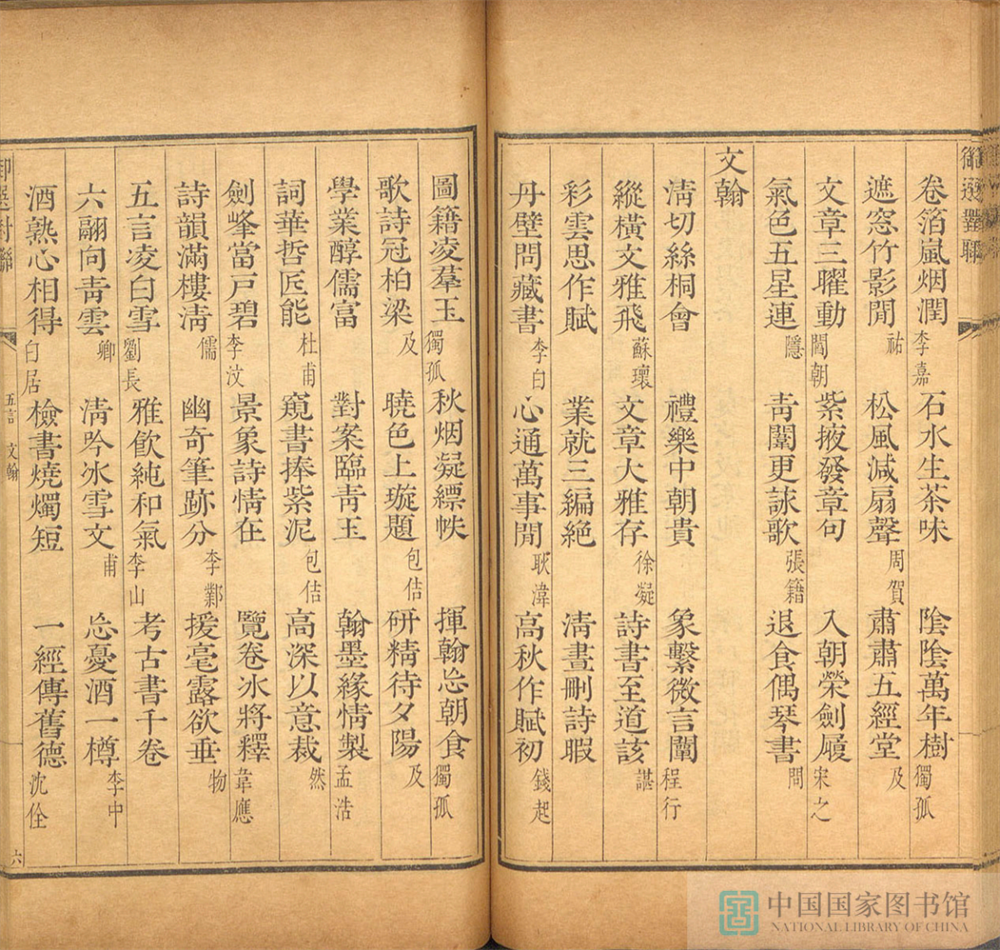 御選對聯
卷箔嵐烟潤 李嘉 石水生茶味 陰陰萬年樹 獨孤
遮窓竹影閒 祐 松風減扇聲 周賀 肅肅五經堂 及
文章三曜動 閻朝 紫掖發章句 入朝榮劍履 宋之
氣色五星連 隱 靑闈更詠歌 張籍 退食偶琴書 問
文翰
淸切絲桐會 禮樂中朝貴 象繫微言闡 程行
縱橫文雅飛 蘇瓌 文章大雅存 徐凝 詩書至道該 諶
彩雲思作賦 業就三編絶 淸晝刪詩暇
丹壁問藏書 李白 心通萬事閒 耿湋 高秋作賦初 錢起
圖籍凌羣玉 獨孤 秋烟凝縹帙 揮翰忘朝食 獨孤
歌詩冠柏梁 及 曉色上璇題 包佶 研精待夕陽 及
學業醇儒富 對案臨靑玉 翰墨緣情製 孟浩
詞華哲匠能 杜甫 窺書捧紫泥 包佶 高深以意裁 然
劍峯當戸碧 李汶 景象詩情在 覽卷冰將釋 韋應
詩韻滿樓淸 儒 幽奇筆跡分 李鄴 援毫露欲垂 物
五言凌白雪 劉長 雅飮純和氣 李山 考古書千卷
六翮向靑雲 卿 淸吟冰雪文 甫 忘憂酒一樽 李中
酒熟心相得 白居 檢書燒燭短 一經傳舊德 沈佺
御選對聯 五言 文翰 六
中国国家图书馆
NATIONAL LIBRARY OF CHINA